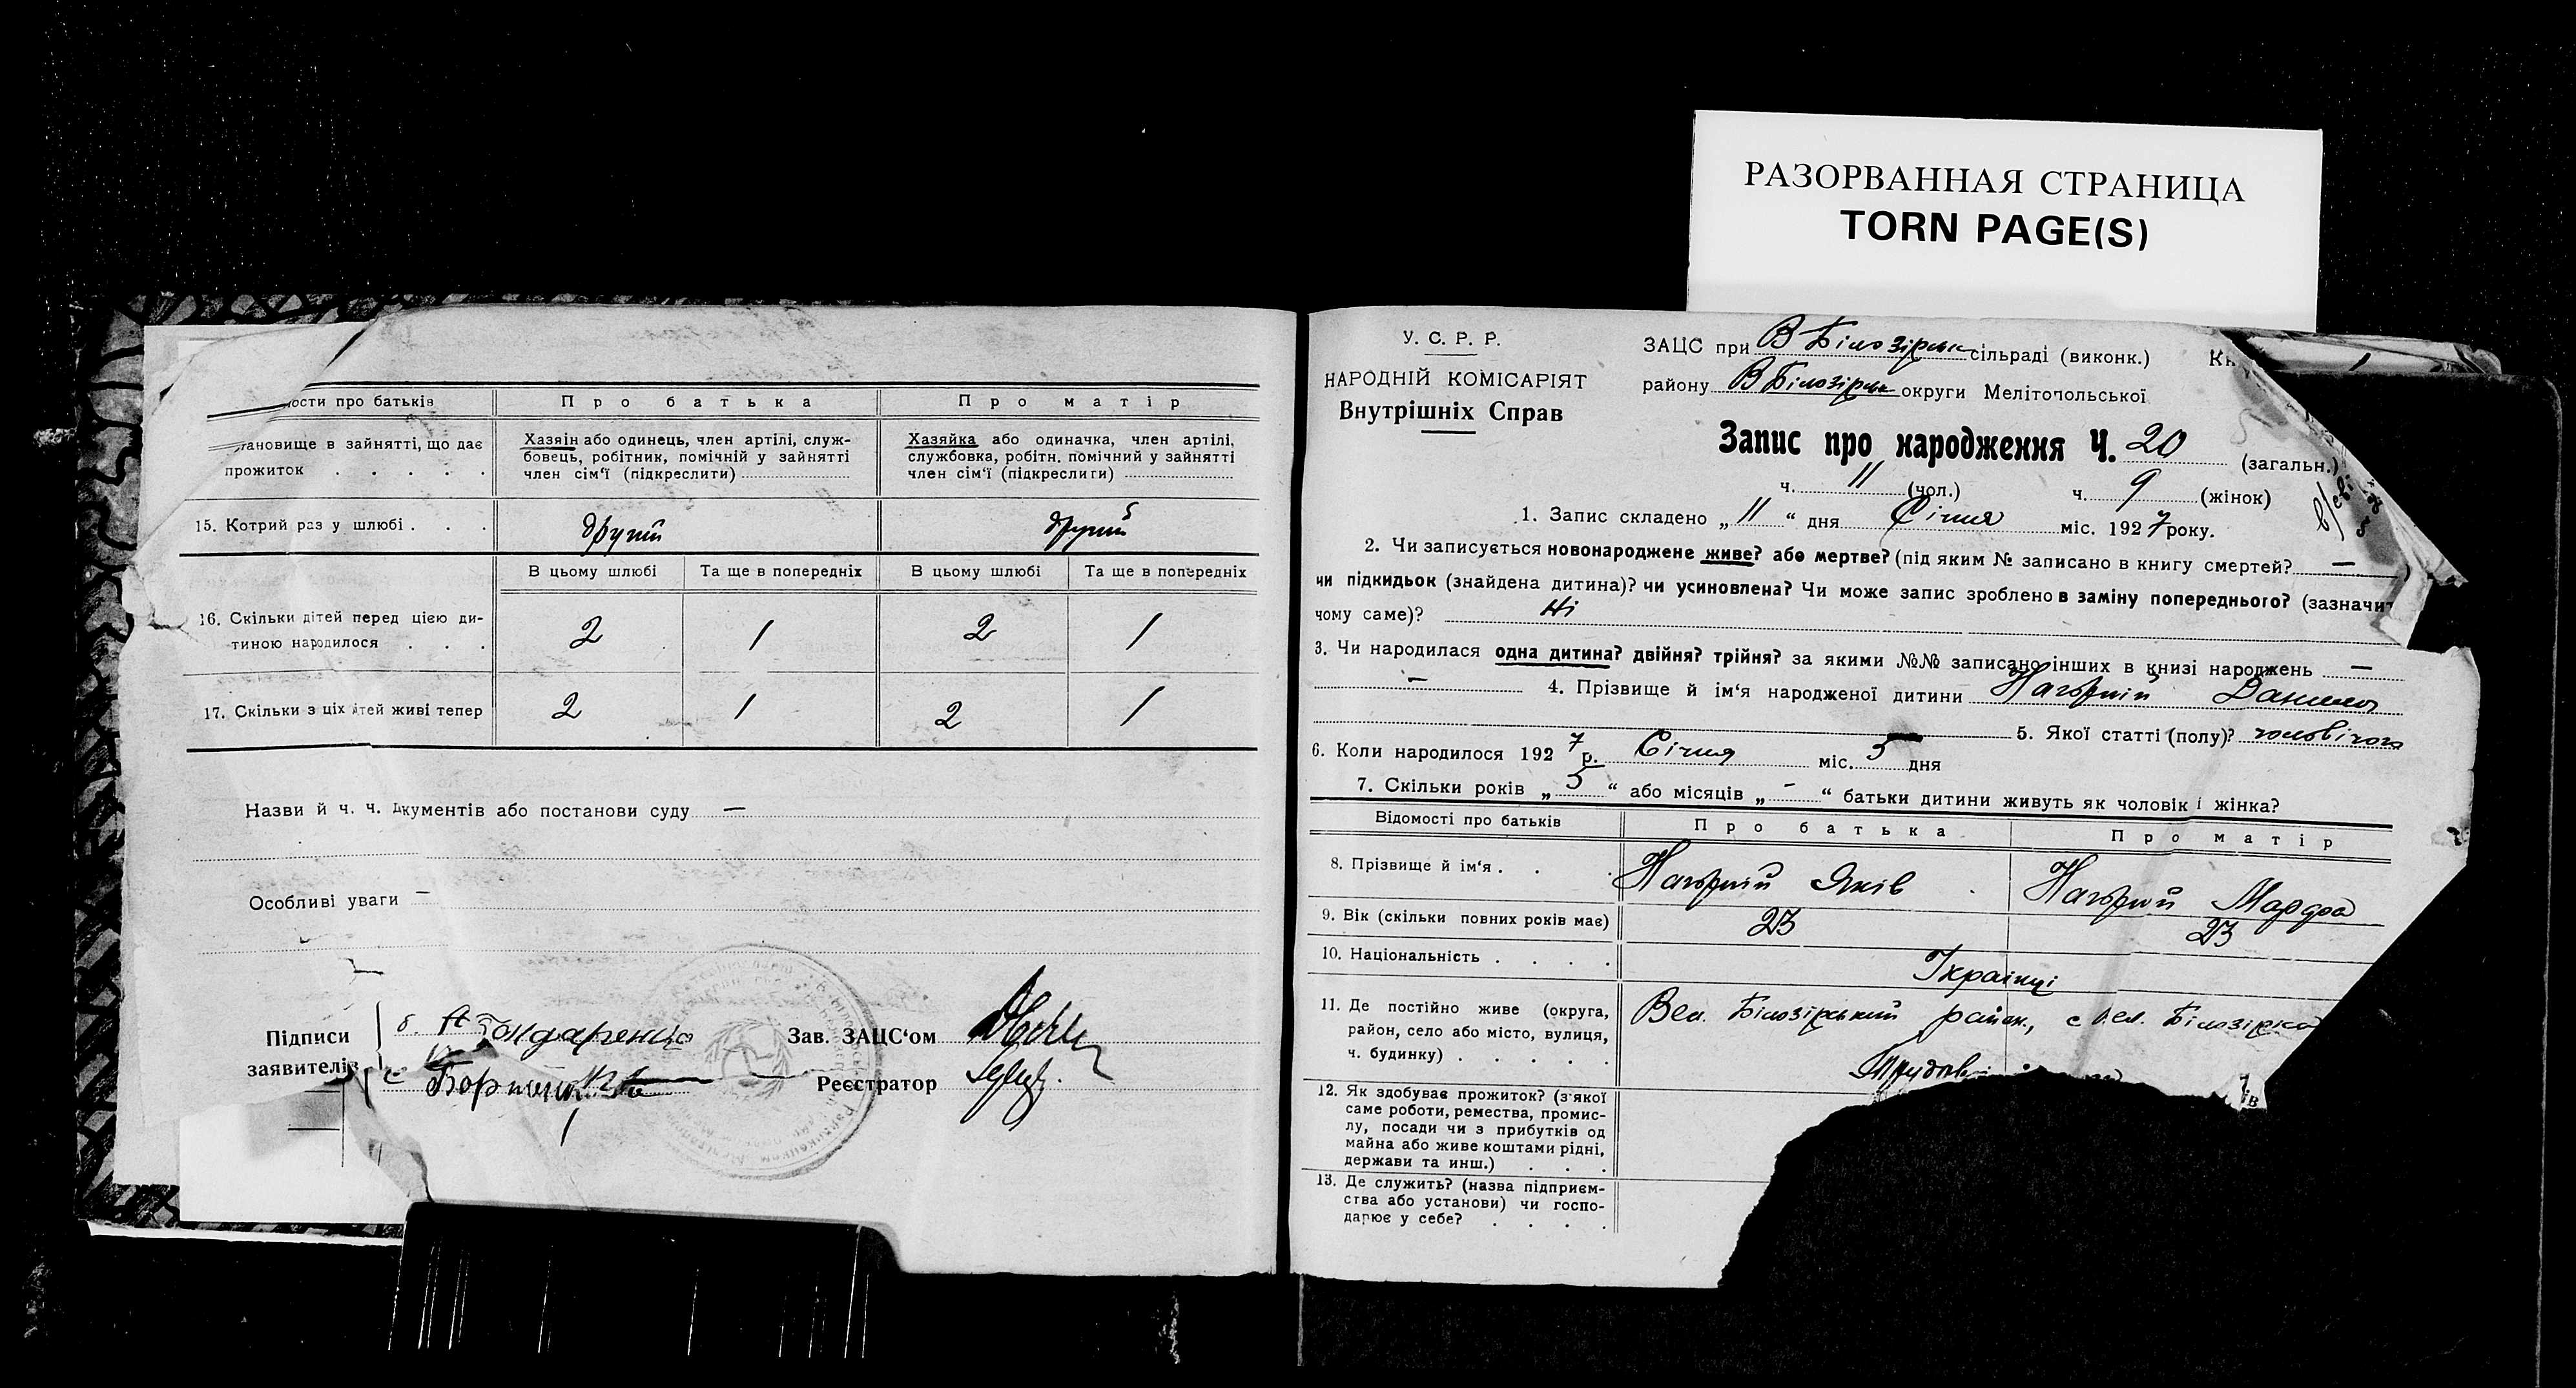 РАЗОРВАННАЯ СТРАНИЦА
TORN PAGE(S)
ости про батьків
Про батька
Про матір
тановище в зайнятті, що дає
прожиток . . . . .
Хазяін або одинець, член артілі, служ-
бовець, робітник, помічній у зайнятті
член сім'ї (підкреслити)
Хазяйка або одиначка, член артілі,
службовка, робітн. помічний у зайнятті
член сім'ї (підкреслиги)
15. Котрий раз у шлюбі . . .
другий
другий
В цьому шлюбі
Та ще в попередніх
В цьому шлюбі
Та ще в попередніх
16. Скільки дітей перед цією ди-
тиною народилося . . .
2 1 2 1
17. Скільки з ціх дтей живі тепер
2 1 2 1
Назви й ч. ч. дкументів або постанови суду —
Особливі уваги —
Підписи
заявителів
Бондаренко
Зав. ЗАЦС'ом
Реєстратор
У. С. Р. Р.
НАРОДНІЙ КОМІСАРІЯТ
Внутрішніх Справ
ЗАЦС при В Білозірськ сільраді (виконк.)
Кн
району В Білозірськ округи Мелітопольської
Запис про народження Ч. 20 (загальн.)
ч. 11 (чол.) ч. 9 (жінок)
1. Запис складено „ 11 “ дня Січня міс. 1927 року.
2. Чи записується новонароджене живе? або мертве? (під яким № записано в книгу смертей? —
чи підкидьок (знайдена дитина)? чи усиновлена? Чи може запис зроблено в заміну попереднього? (зазначит
чому саме)? Ні
3. Чи народилася одна дитина? двійня? трійня? за якими №№ записано інших в книзі народжень —
— 4. Прізвище й ім'я народженої дитини Нагорній Данило
5. Якої статті (полу)? чоловічого
6. Коли народилося 1927 р. Січня міс. 5 дня
7. Скільки років „ 5 “ або місяців „ - “ батьки дитини живуть як чоловік і жінка?
Відомості про батьків
Про батька
Про матір
8. Прізвище й ім'я . . .
Нагорній Яків
Нагорній Марфа
9. Вік (скільки повних років має)
23
23
10. Національність . . . .
Українці
11. Де постійно живе (округа,
район, село або місто, вулиця,
ч. будинку) . . . . .
Вел. Білозірський район, с Вел. Білозірка
12. Як здобуває прожиток? (з якої
саме роботи, ремества, промис-
лу, посади чи з прибутків од
майна або живе коштами рідні,
держави та инш.) . . .
13. Де служить? (назва підприєм-
ства або установи) чи госпо-
дарює у себе? . . . .